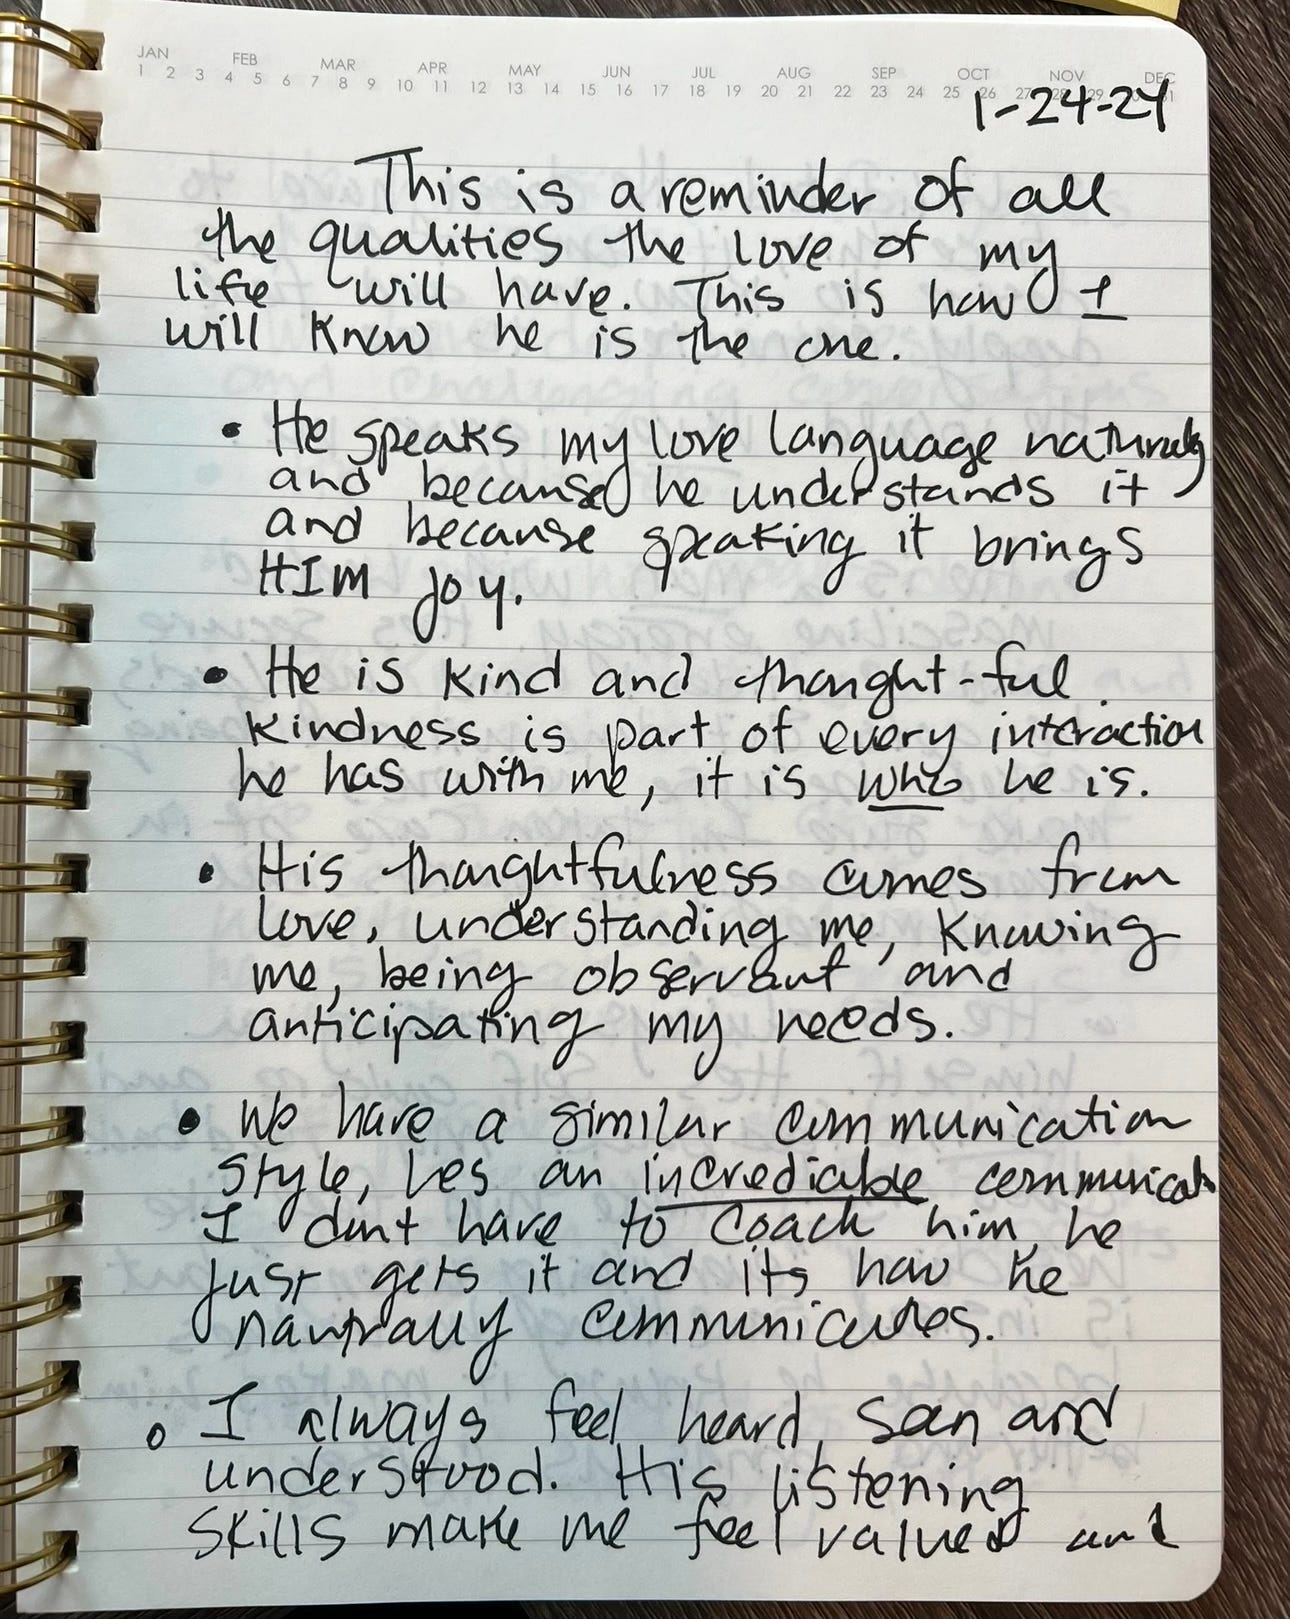 JAN FEB MAR APR MAY JUN JUL AUG SEP OCT NOV DEC
1 2 3 4 5 6 7 8 9 10 11 12 13 14 15 16 17 18 19 20 21 22 23 24 25 26 27 28 29 31
1-24-24
This is a reminder of all
the qualities the love of my
life will have. This is how I
will know he is the one.
• He speaks my love language naturally
and because he understands it
and because speaking it brings
HIM joy.
• He is kind and thought-ful.
Kindness is part of every interaction
he has with me, it is who he is.
• His thoughtfulness comes from
love, understanding me, knowing
me, being observant and
anticipating my needs.
• We have a similar communication
style, hes an incrediable
I dont have to coach him, he
just gets it and its how he
naturally communicates.
• I always feel heard, seen and
understood. His listening
skills make me feel valued and